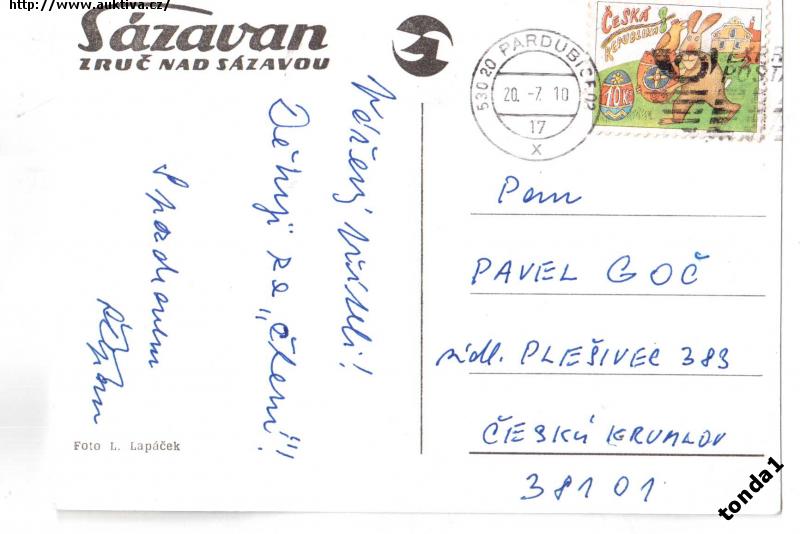 http://www.auktiva.cz/
Sázavan
ZRUČ NAD SÁZAVOU
530 20 PARDUBICE 02
20. -7. 10
17
x
ČESKÁ
REPUBLIKA
10Kč
Vážený příteli!
Děkuji za „čtení“!
S pozdravem
Pan
PAVEL GOČ
sídl. PLEŠIVEC 383
ČESKÝ KRUMLOV
381 01
Foto L. Lapáček
tonda1